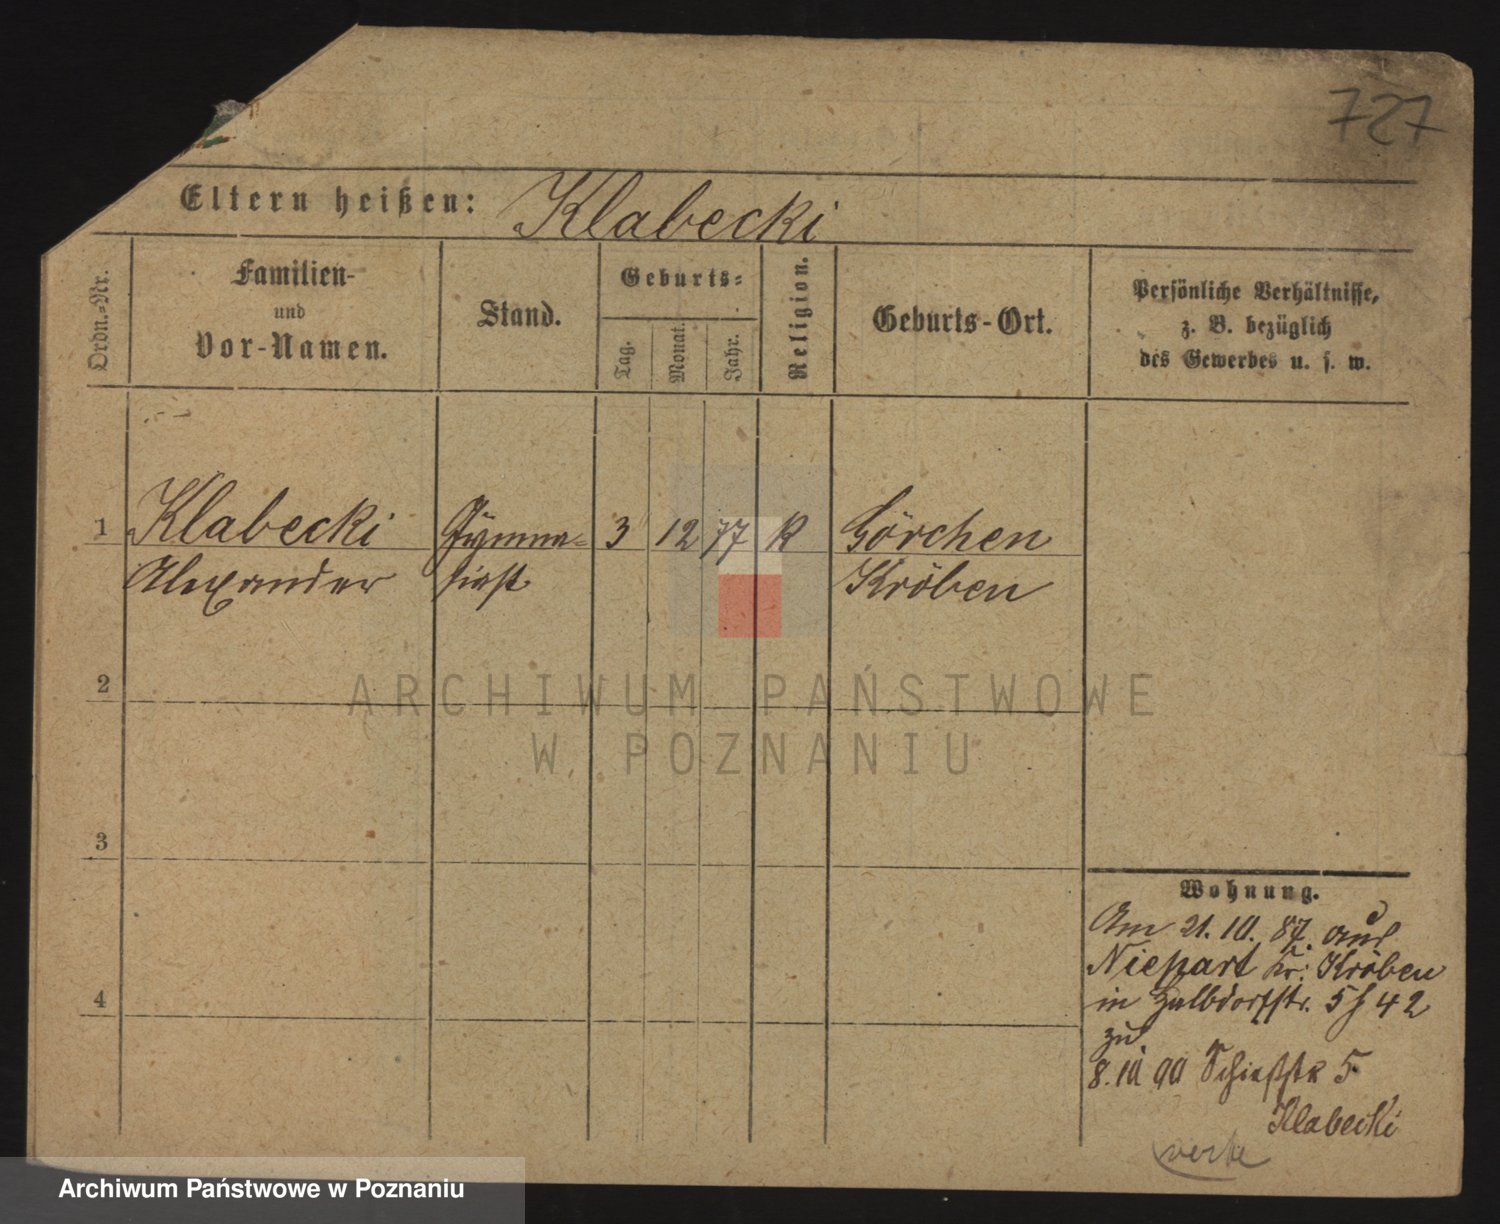 727
Eltern heißen: Klabecki
Ordn.-Nr.
Familien-
und
Vor-Namen.
Stand.
Geburts-
Tag.
Monat.
Jahr.
Religion.
Geburts-Ort.
Persönliche Verhältnisse,
z. B. bezüglich
des Gewerbes u. s. w.
1 Klabecki Gymna- 3 12 77 K Görchen
Alexander siast Kröben
2
3
4
Wohnung.
Am 21.10. 87. aus
Niepart Kr: Kröben
in Halbdorfstr. 5 42
zu
8.10 90 Schießstr 5
Klabecki
ARCHIWUM PAŃSTWOWE
W POZNANIU
Archiwum Państwowe w Poznaniu